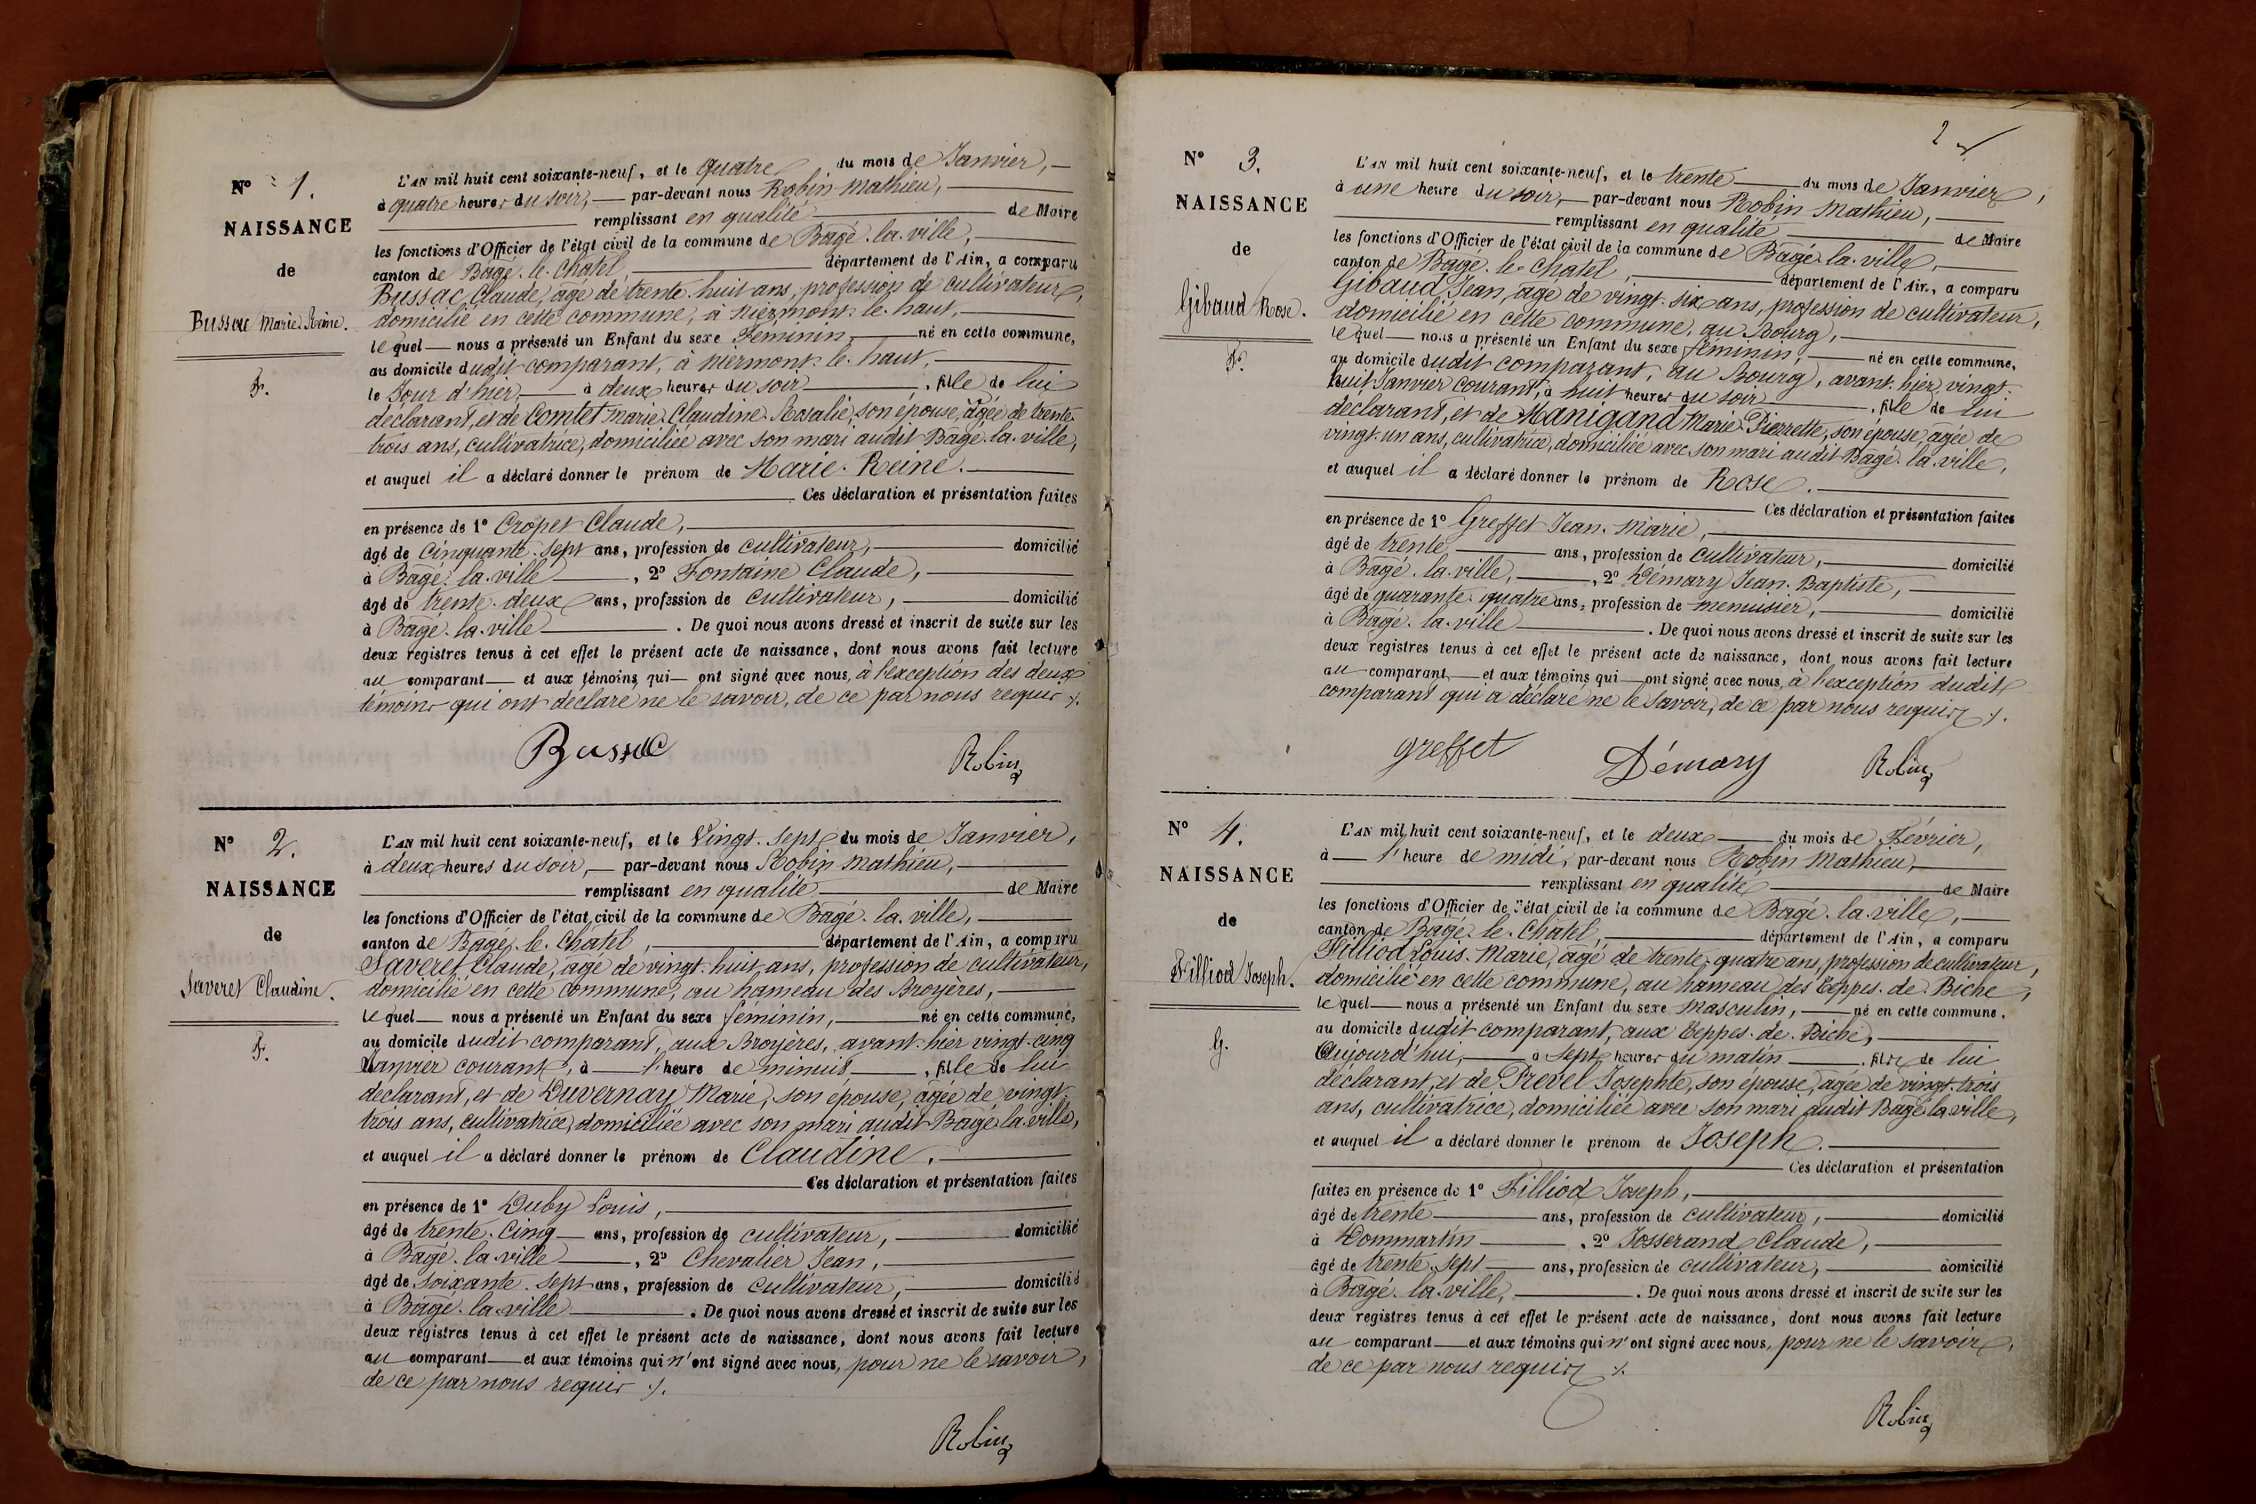 N° 1.
NAISSANCE
de
Bussac Marie Reine.
F.
L'AN mil huit cent soixante-neuf, et le quatre du mois de Janvier,
à quatre heures du soir, par-devant nous Robin Mathieu,
remplissant en qualité de Maire
les fonctions d'Officier de l'état civil de la commune de Bagé-la-ville,
canton de Bagé-le-Châtel, département de l'Ain, a comparu
Bussac Claude, âgé de trente-huit ans, profession de cultivateur,
domicilié en cette commune, à niermont-le-haut,
lequel nous a présenté un Enfant du sexe Féminin, né en cette commune,
au domicile dudit comparant, à niermont-le-haut,
le Jour d'hier, à deux heures du soir, fille de lui
déclarant, et de Comtet Marie-Claudine-Rosalie, son épouse, âgée de trente-
trois ans, cultivatrice, domiciliée avec son mari audit Bagé-la-ville,
et auquel il a déclaré donner le prénom de Marie-Reine.
Ces déclaration et présentation faites
en présence de 1° Cropet Claude,
âgé de cinquante-sept ans, profession de cultivateur, domicilié
à Bagé-la-ville, 2° Fontaine Claude,
âgé de trente-deux ans, profession de cultivateur, domicilié
à Bagé-la-ville. De quoi nous avons dressé et inscrit de suite sur les
deux registres tenus à cet effet le présent acte de naissance, dont nous avons fait lecture
au comparant et aux témoins qui ont signé avec nous, à l'exception des deux
témoins qui ont déclaré ne le savoir, de ce par nous requis ./.
Bussac Robin
N° 2.
NAISSANCE
de
Saveret Claudine.
F.
L'AN mil huit cent soixante-neuf, et le Vingt-sept du mois de Janvier,
à deux heures du soir, par-devant nous Robin Mathieu,
remplissant en qualité de Maire
les fonctions d'Officier de l'état civil de la commune de Bagé-la-ville,
canton de Bagé-le-Châtel, département de l'Ain, a comparu
Saveret Claude, âgé de vingt-huit ans, profession de cultivateur,
domicilié en cette commune, au hameau des Broyères,
lequel nous a présenté un Enfant du sexe féminin, né en cette commune,
au domicile dudit comparant, aux Broyères, avant-hier vingt-cinq
Janvier courant, à l'heure de minuit, fille de lui
déclarant, et de Duvernay Marie, son épouse, âgée de vingt-
trois ans, cultivatrice, domiciliée avec son mari audit Bagé-la-ville,
et auquel il a déclaré donner le prénom de Claudine.
Ces déclaration et présentation faites
en présence de 1° Duby Louis,
âgé de trente-cinq ans, profession de cultivateur, domicilié
à Bagé-la-ville, 2° Chevalier Jean,
âgé de soixante-sept ans, profession de cultivateur, domicilié
à Bagé-la-ville. De quoi nous avons dressé et inscrit de suite sur les
deux registres tenus à cet effet le présent acte de naissance, dont nous avons fait lecture
au comparant et aux témoins qui n'ont signé avec nous, pour ne le savoir,
de ce par nous requis ./.
Robin
2
N° 3.
NAISSANCE
de
Gibaud Rose.
F.
L'AN mil huit cent soixante-neuf, et le trente du mois de Janvier,
à une heure du soir, par-devant nous Robin Mathieu,
remplissant en qualité de Maire
les fonctions d'Officier de l'état civil de la commune de Bagé-la-ville,
canton de Bagé-le-Châtel, département de l'Ain, a comparu
Gibaud Jean, âgé de vingt-six ans, profession de cultivateur,
domicilié en cette commune, au Bourg,
lequel nous a présenté un Enfant du sexe féminin, né en cette commune,
au domicile dudit comparant, au Bourg, avant-hier, vingt-
huit Janvier courant, à huit heures du soir, fille de lui
déclarant, et de Manigand Marie-Pierrette, son épouse, âgée de
vingt-un ans, cultivatrice, domiciliée avec son mari audit Bagé-la-ville,
et auquel il a déclaré donner le prénom de Rose.
Ces déclaration et présentation faites
en présence de 1° Greffet Jean-Marie,
âgé de trente ans, profession de cultivateur, domicilié
à Bagé-la-ville, 2° Démary Jean-Baptiste,
âgé de quarante-quatre ans, profession de menuisier, domicilié
à Bagé-la-ville. De quoi nous avons dressé et inscrit de suite sur les
deux registres tenus à cet effet le présent acte de naissance, dont nous avons fait lecture
au comparant, et aux témoins qui ont signé avec nous, à l'exception dudit
comparant qui a déclaré ne le savoir, de ce par nous requis ./.
greffet Démary Robin
N° 4.
NAISSANCE
de
Filliod Joseph.
G.
L'AN mil huit cent soixante-neuf, et le deux du mois de Février,
à l'heure de midi, par-devant nous Robin Mathieu,
remplissant en qualité de Maire
les fonctions d'Officier de l'état civil de la commune de Bagé-la-ville,
canton de Bagé-le-Châtel, département de l'Ain, a comparu
Filliod Louis-Marie, âgé de trente-quatre ans, profession de cultivateur,
domicilié en cette commune, au hameau des Teppes-de-Biche,
lequel nous a présenté un Enfant du sexe masculin, né en cette commune,
au domicile dudit comparant, aux Teppes-de-Biche,
Aujourd'hui, à sept heures du matin, fils de lui
déclarant, et de Prevel Josephte, son épouse, âgée de vingt-trois
ans, cultivatrice, domiciliée avec son mari audit Bagé-la-ville,
et auquel il a déclaré donner le prénom de Joseph.
Ces déclaration et présentation
faites en présence de 1° Filliod Joseph,
âgé de trente ans, profession de cultivateur, domicilié
à Dommartin, 2° Josserand Claude,
âgé de trente-sept ans, profession de cultivateur, domicilié
à Bagé-la-ville, . De quoi nous avons dressé et inscrit de suite sur les
deux registres tenus à cet effet le présent acte de naissance, dont nous avons fait lecture
au comparant et aux témoins qui n'ont signé avec nous, pour ne le savoir,
de ce par nous requis ./.
Robin